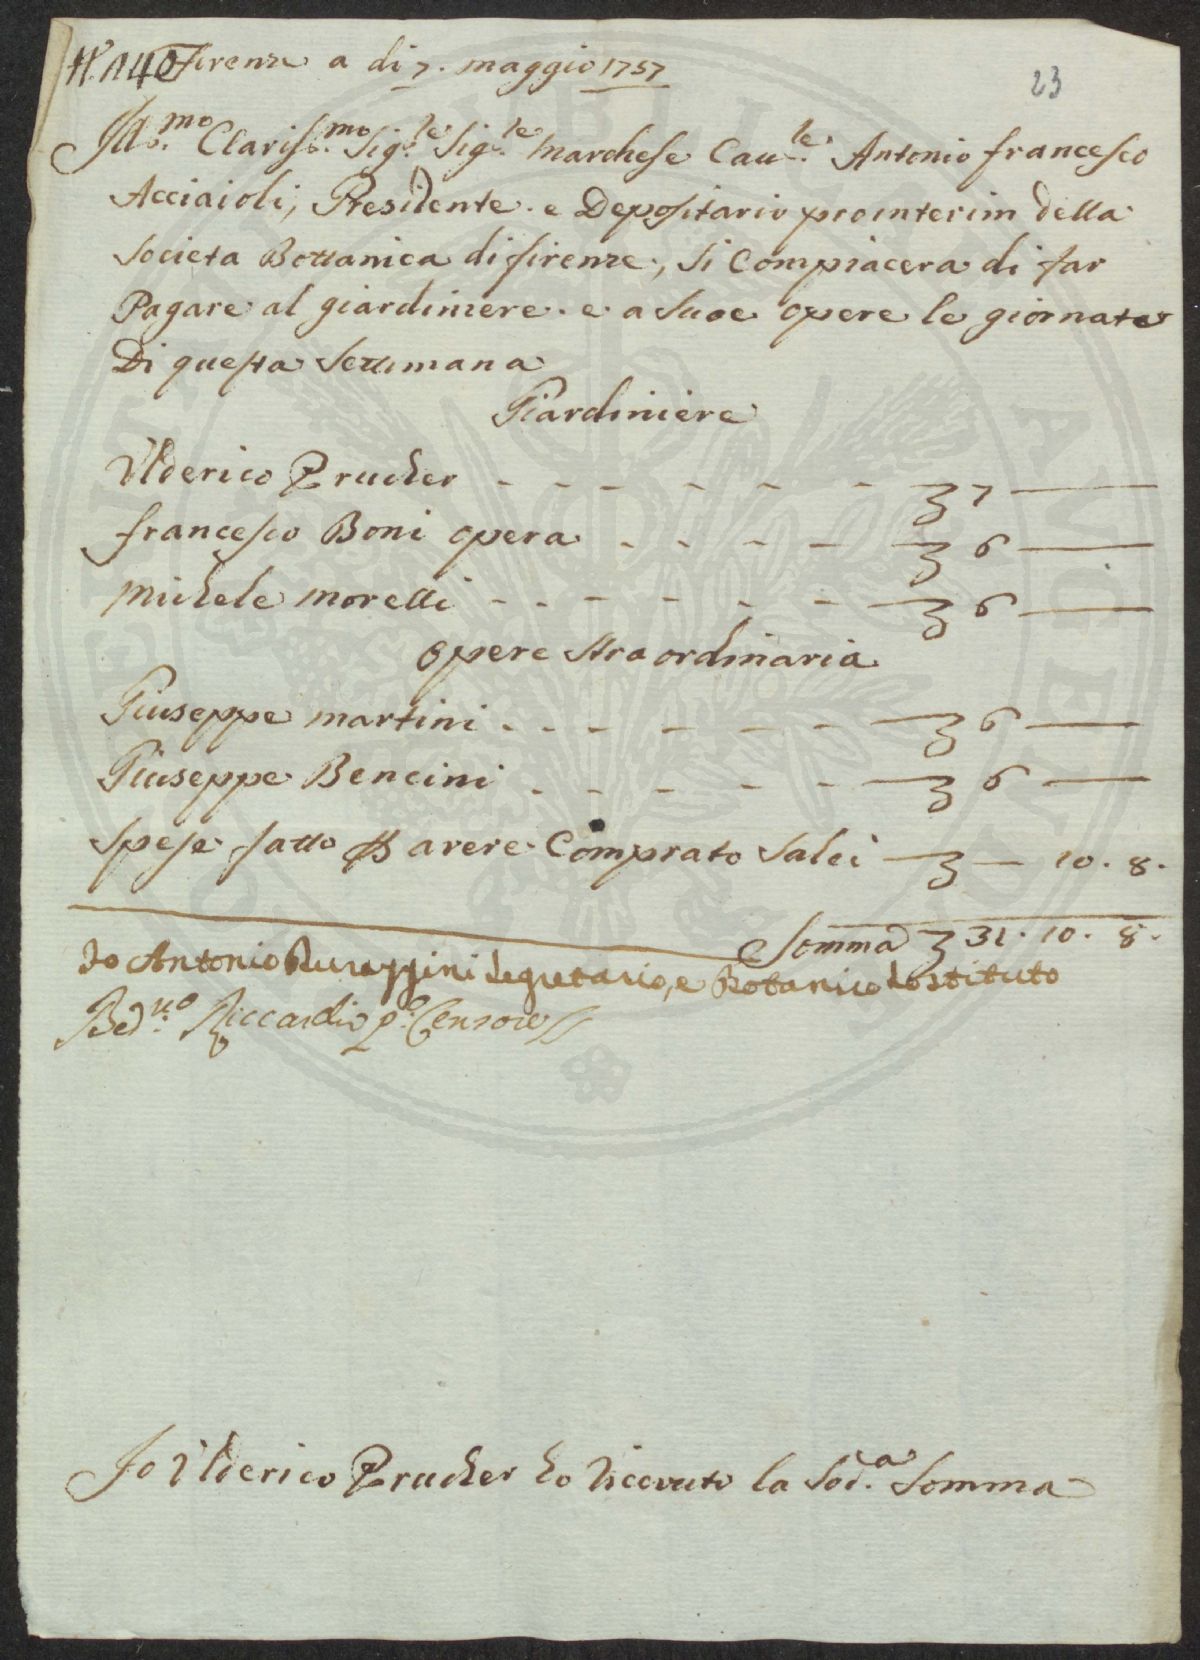 N. 140 Firenze a di 7. maggio 1757
23
Ill.mo Clariss.mo Sig.le Sig.le Marchese Cau.le Antonio francesco
Acciaioli, Presidente e Depositario prointerim della
Societa Bottanica di firenze, Si Compiacera di far
Pagare al giardiniere e a Sue opere le giornate
Di questa Settimana
Giardiniere
Vlderico Prucher - - - - - - 7
francesco Boni opera - - - - 6
Michele morelli - - - - - - 6
opere Straordinaria
Giuseppe martini - - - - - - 6
Giuseppe Bencini - - - - - 6
Spese fatto avere Comprato Salci — 10. 8.
Somma 31. 10. 8.
Io Antonio Durazzini Segretario, e Botanico Sostituto
Bed.tto Riccardi p.o Censore
Io Vlderico Prucher ho Ricevuto la Sod.a Somma